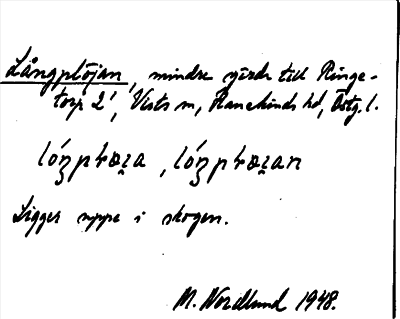 Långplöjan, mindre gärde till Ringe-
torp 2', Vists sn, Hanekinds hd, Östg. l.
Ligger uppe i skogen.
M. Nordlund 1948.